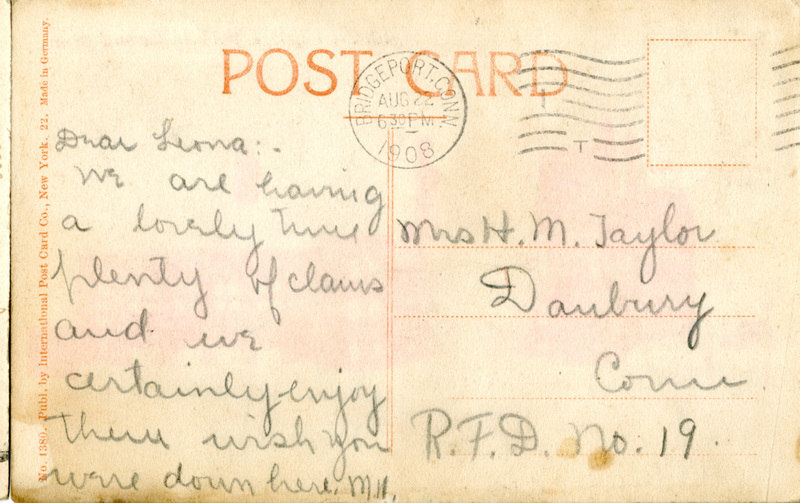 No. 1380. Publ. by International Post Card Co., New York. 22. Made in Germany.
POST CARD
BRIDGEPORT, CONN.
AUG 22
6 30 PM
1908
T
Dear Leona:-
We are having
a lovely time
plenty of clams
and we
certainly enjoy
them wish you
were down here. M.H.
Mrs H. M. Taylor
Danbury
Conn
R.F.D. No. 19.